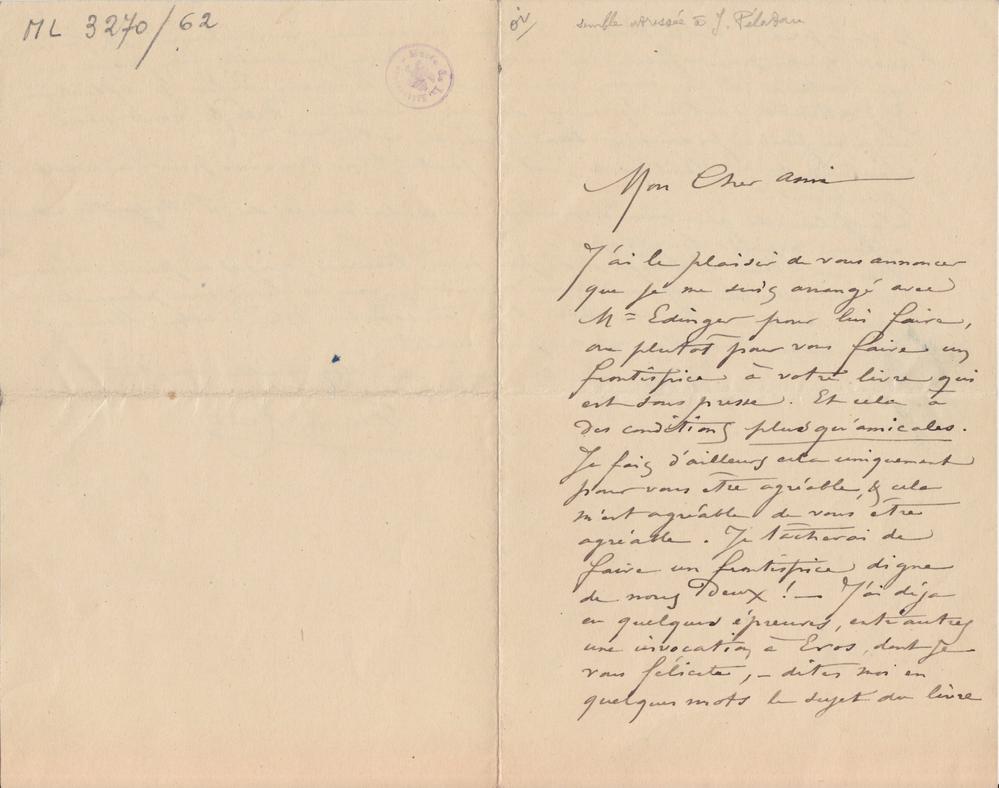 ML 3270/62
Musée de la
semble adressée à J. Péladan
Mon Cher ami
J'ai le plaisir de vous annoncer
que je me suis arrangé avec
Mr Edinger pour lui faire,
ou plutôt pour vous faire un
frontispice à votre livre qui
est sous presse. Et cela à
des conditions plus qu'amicales.
Je fais d'ailleurs cela uniquement
pour vous être agréable, & cela
m'est agréable de vous être
agréable. Je tâcherai de
faire un frontispice digne
de nous Deux ! — J'ai déja
eu quelques épreuves, entr'autres
une invocation à Eros, dont je
vous félicite, – dites moi en
quelques mots le sujet du livre